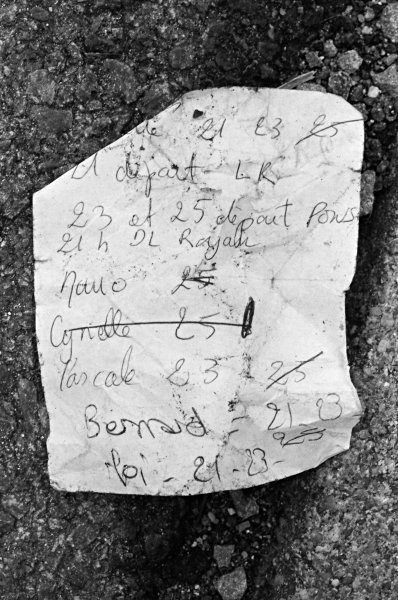 de 21 23 25
21 départ LR
23 et 25 départ Pons
21h DL Royan
Mano 25
Cyrielle 25
Pascale 23 25
Bernard - 21-23
25
Moi - 21-23-